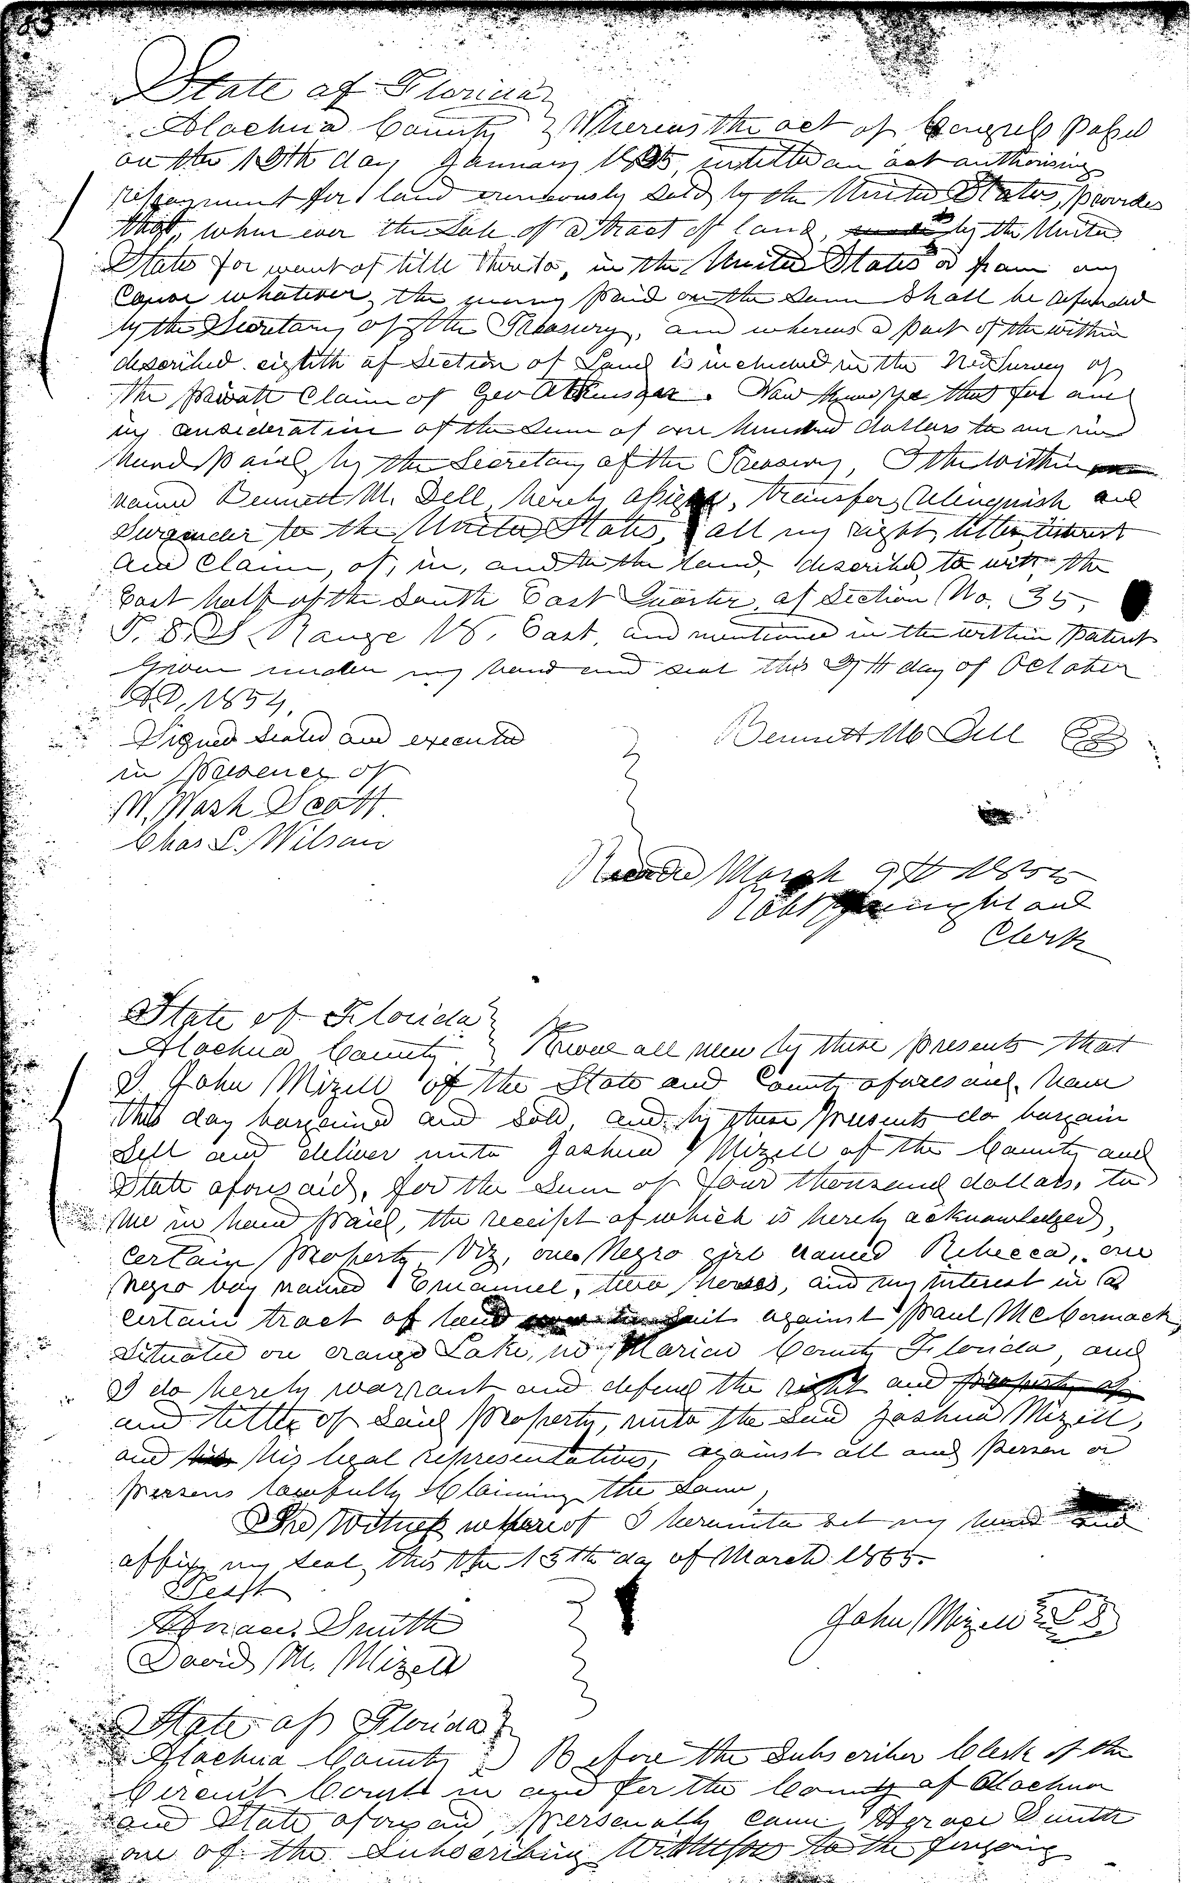 83
State of Florida
Alachua County } Whereas the act of Congress passed
on the 12th day January 1825, intitled an act authorising
repayment for land erroneously sold by the United States, provides
that, when ever the Sale of a tract of land, by the United
States for want of title thereto, in the United States or from any
Cause whatever, the money paid on the same shall be refunded
by the Secretary of the Treasury, and whereas a part of the within
described eighth of Section of Land is included in the Survey of
the private Claim of Geo Atkinson. Now know ye that for and
in consideration of the sum of one hundred dollars to me in
hand paid, by the Secretary of the Treasury, I the within
named Bennett M. Dell, hereby assign, transfer, relinquish and
Surrender to the United States, all my right, title, interest
and Claim, of, in, and to the land, described, to wit, the
East half of the South East Quarter, of Section No. 35,
T. 8. S. Range 18. East, and mentioned in the within Patent
Given under my hand and seal this 27th day of October
A.D, 1854.
Signed Sealed and executed
in presence of
W. Wash Scott
Chas L. Wilson
Bennett M Dell
Recorded March 9th 1855
Robt
Clerk
State of Florida
Alachua County } Know all men by these presents that
I John Mizell of the State and County aforesaid. have
this day bargained and sold, and by these presents do bargain
Sell and deliver unto Joshua Mizell of the County and
State aforesaid, for the Sum of four thousand dollars, to
me in hand paid, the receipt of which is hereby acknowledged,
certain Property Viz, one Negro girl named Rebecca, one
Negro boy named Emanuel, two horses, and my interest in a
certain tract of land now in suit against Paul McCormack,
situated on orange Lake, in Marion County Florida, and
I do hereby warrant and defend the right and property of
and tittle of Said Property, unto the Said Joshua Mizell,
and his his legal representatives, against all and person or
persons lawfully Claiming the Same,
In Witness whereof I hereunto set my hand and
affix my seal, this the 15th day of March 1855.
Test
Horace Smith
David M. Mizell
John Mizell L S
State of Florida
Alachua County } Before the Subscriber Clerk of the
Circuit Court in and for the County of Alachua
and State aforesaid, personally came Horace Smith
one of the Subscribing Witnesses to the foregoing